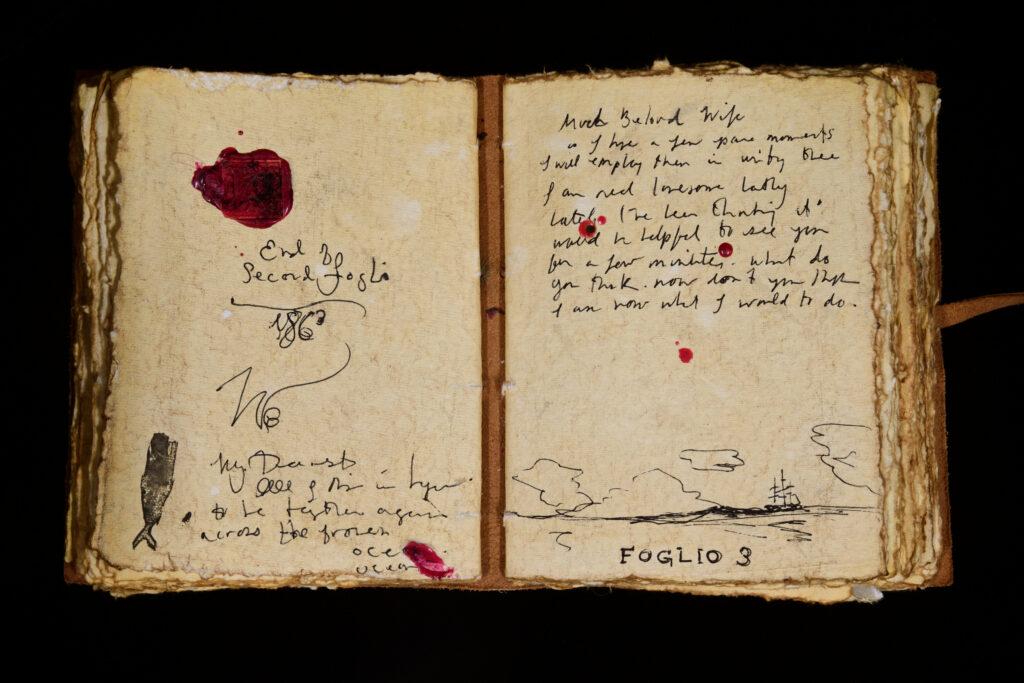 End of
Second foglio
1863
My Dearest
to be together again
across the frozen
oce
ocean
Much Beloved Wife
as I have a few spare moments
I will employ them in writing thee
I am real lonesome lately
Lately I've been thinking it
would be helpful to see you
for a few minutes. what do
you think. now don't you think
I am now what I would to do.
FOGLIO 3